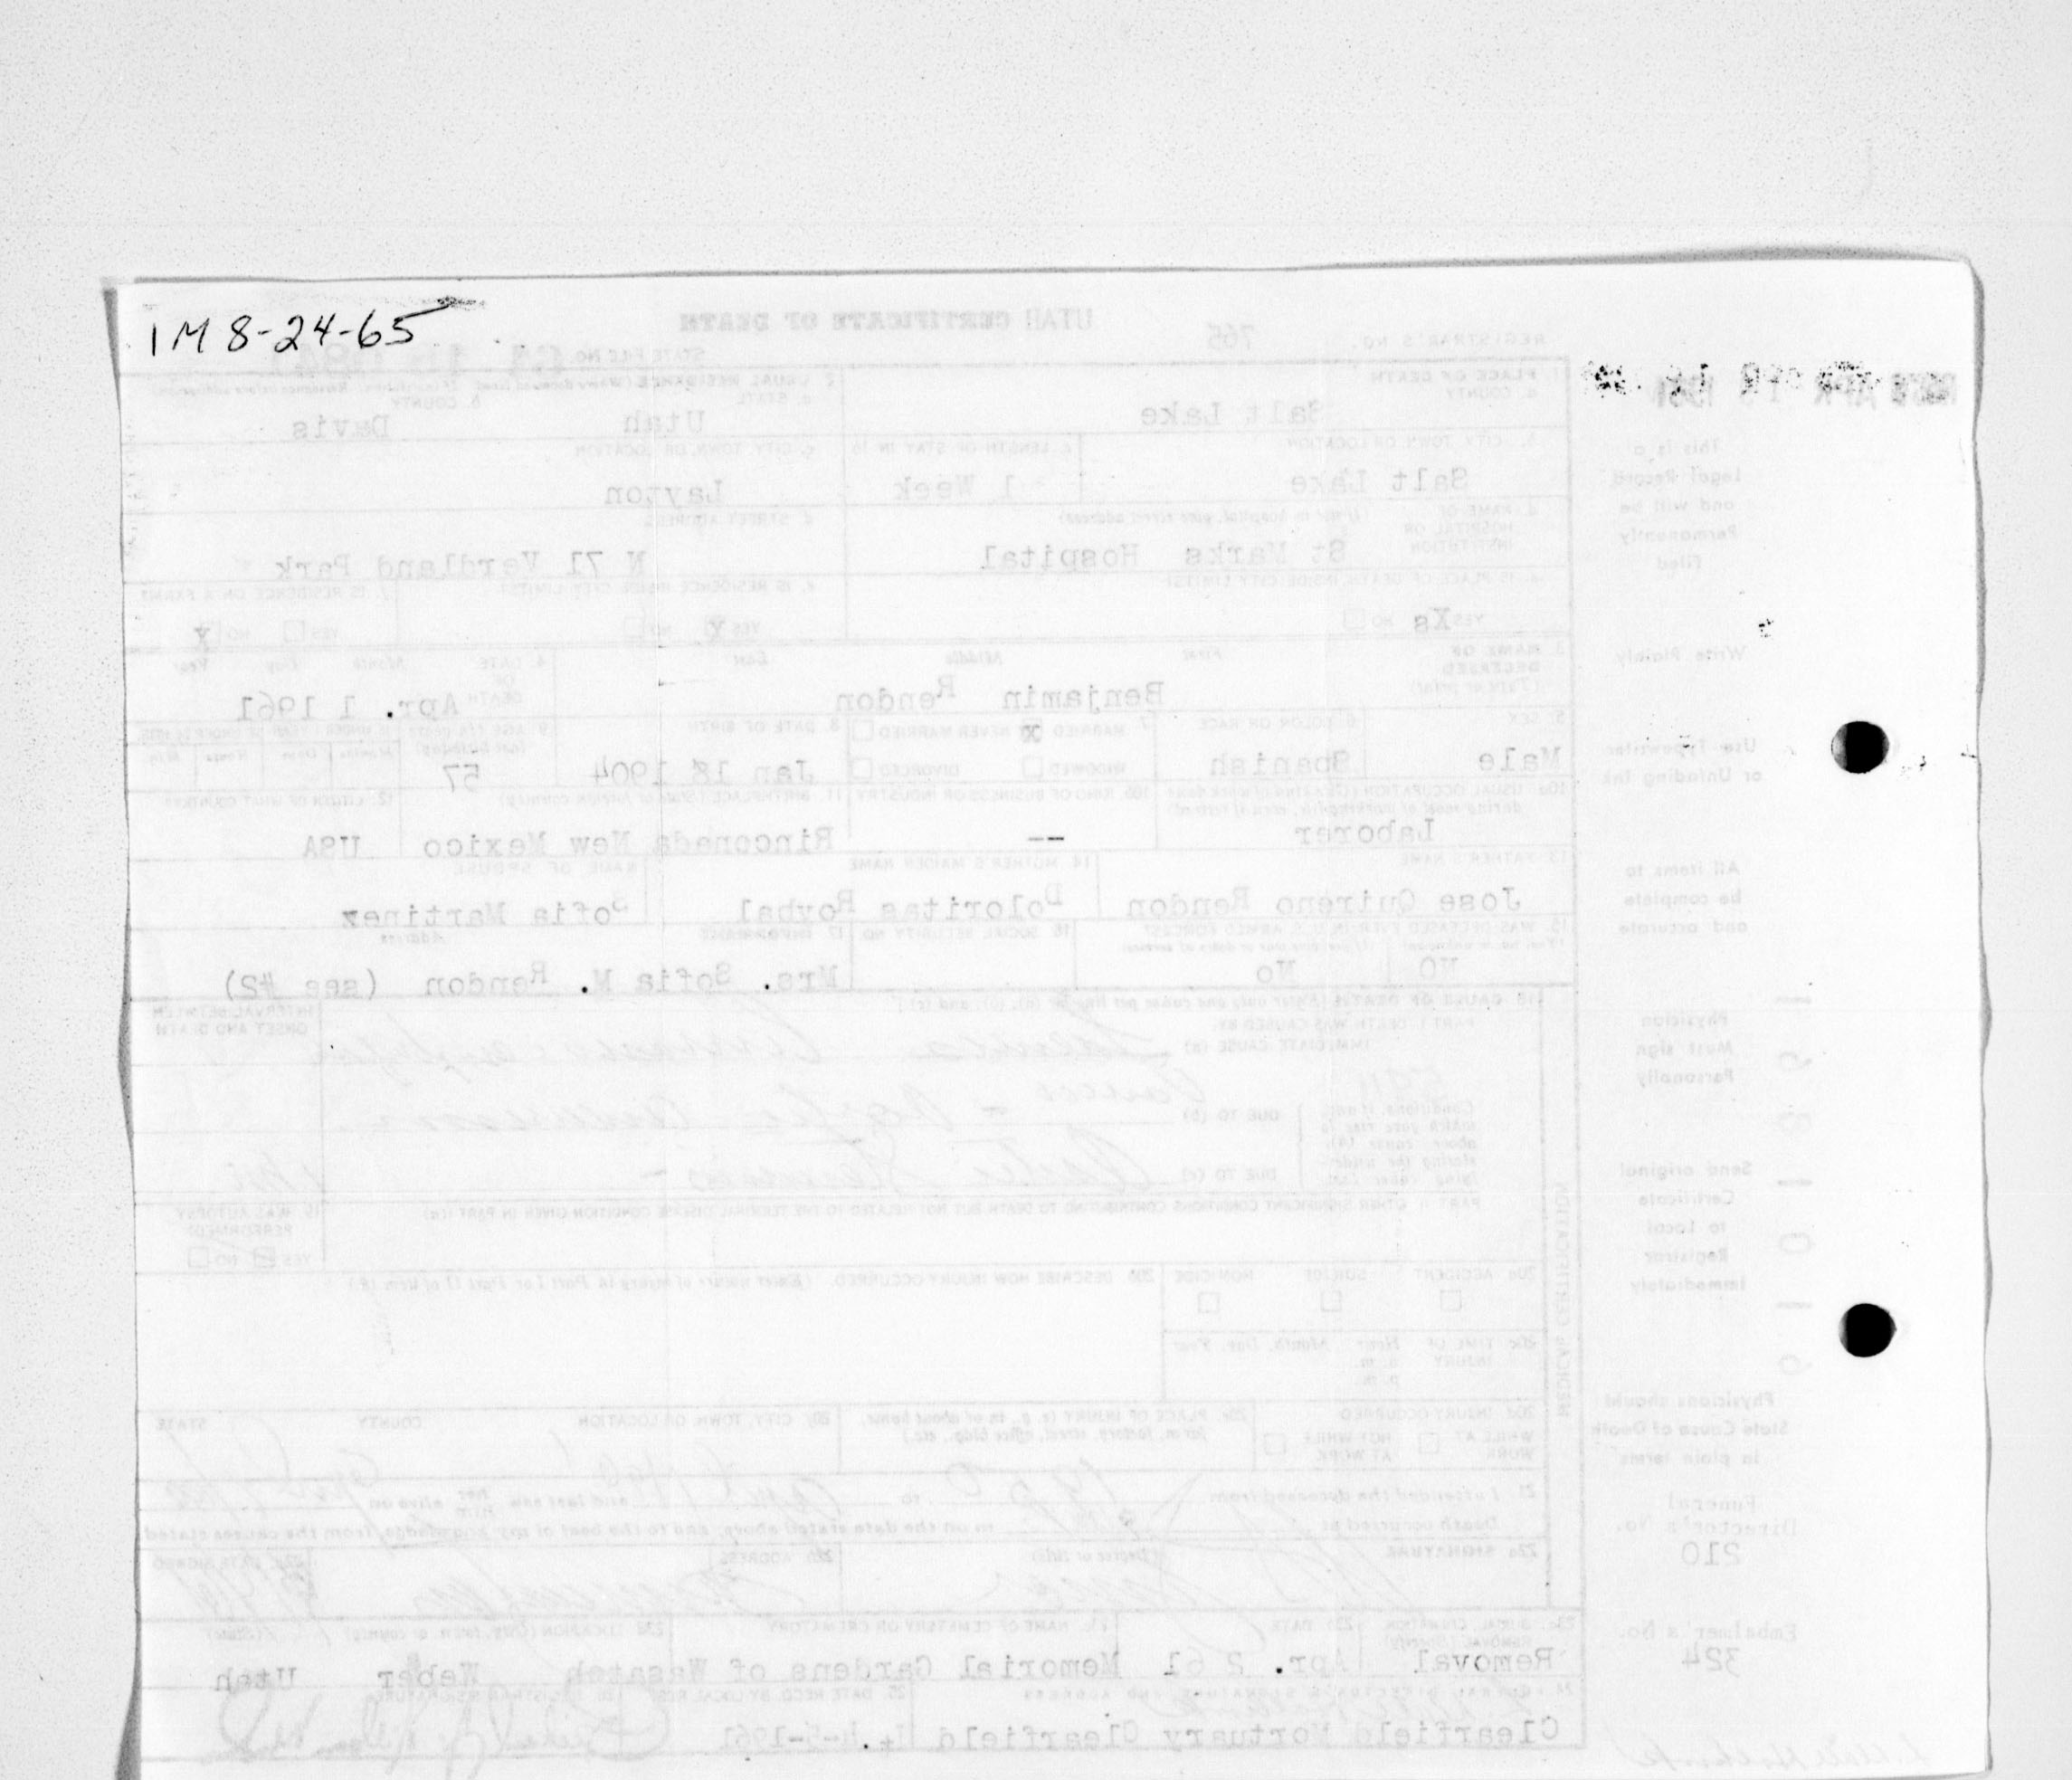 1M 8-24-65
UTAH CERTIFICATE OF DEATH
REGISTRAR'S NO. 765
STATE FILE No.
1. PLACE OF DEATH
a. COUNTY
Salt Lake
2. USUAL RESIDENCE (Where deceased lived. If institution: Residence before admission)
a. STATE
Utah
b. COUNTY
Davis
b. CITY, TOWN, OR LOCATION
Salt Lake
c. LENGTH OF STAY IN 1b
1 Week
c. CITY, TOWN, OR LOCATION
Layton
d. NAME OF HOSPITAL OR INSTITUTION (If not in hospital, give street address)
St Marks Hospital
d. STREET ADDRESS
N 71 Verdland Park
e. IS PLACE OF DEATH INSIDE CITY LIMITS?
YES Xs NO
e. IS RESIDENCE INSIDE CITY LIMITS?
YES X NO
f. IS RESIDENCE ON A FARM?
YES NO X
3. NAME OF DECEASED (Type or print)
First Middle Last
Benjamin Rendon
4. DATE OF DEATH
Month Day Year
Apr. 1 1961
5. SEX
Male
6. COLOR OR RACE
Spanish
7. MARRIED X NEVER MARRIED
WIDOWED DIVORCED
8. DATE OF BIRTH
Jan 18 1904
9. AGE (In years last birthday)
57
IF UNDER 1 YEAR IF UNDER 24 HRS.
Months Days Hours Min.
10a. USUAL OCCUPATION (Give kind of work done during most of working life, even if retired)
Laborer
10b. KIND OF BUSINESS OR INDUSTRY
--
11. BIRTHPLACE (State or foreign country)
Rinconada New Mexico
12. CITIZEN OF WHAT COUNTRY?
USA
13. FATHER'S NAME
Jose Quireno Rendon
14. MOTHER'S MAIDEN NAME
Doloritas Roybal
NAME OF SPOUSE
Sofia Martinez
15. WAS DECEASED EVER IN U. S. ARMED FORCES?
(Yes, no, or unknown) (If yes, give war or dates of service)
NO No
16. SOCIAL SECURITY NO.
17. INFORMANT Address
Mrs. Sofia M. Rendon (see #2)
18. CAUSE OF DEATH (Enter only one cause per line for (a), (b), and (c).)
PART I. DEATH WAS CAUSED BY:
IMMEDIATE CAUSE (a)
INTERVAL BETWEEN ONSET AND DEATH
Conditions, if any, which gave rise to above cause (a), stating the underlying cause last.
DUE TO (b)
DUE TO (c)
PART II. OTHER SIGNIFICANT CONDITIONS CONTRIBUTING TO DEATH BUT NOT RELATED TO THE TERMINAL DISEASE CONDITION GIVEN IN PART I(a)
19. WAS AUTOPSY PERFORMED?
YES NO
20a. ACCIDENT SUICIDE HOMICIDE
20b. DESCRIBE HOW INJURY OCCURRED. (Enter nature of injury in Part I or Part II of item 18.)
20c. TIME OF INJURY Hour Month, Day, Year
a. m.
p. m.
20d. INJURY OCCURRED
WHILE AT WORK NOT WHILE AT WORK
20e. PLACE OF INJURY (e. g., in or about home, farm, factory, street, office bldg., etc.)
20f. CITY, TOWN, OR LOCATION COUNTY STATE
21. I attended the deceased from to and last saw her him alive on
Death occurred at m on the date stated above; and to the best of my knowledge, from the causes stated.
22a. SIGNATURE (Degree or title)
22b. ADDRESS
22c. DATE SIGNED
MEDICAL CERTIFICATION
23a. BURIAL, CREMATION, REMOVAL (Specify)
Removal
23b. DATE
Apr. 2 61
23c. NAME OF CEMETERY OR CREMATORY
Memorial Gardens of Wasatch
23d. LOCATION (City, town, or county) (State)
Weber Utah
24. FUNERAL DIRECTOR'S SIGNATURE AND ADDRESS
Clearfield Mortuary Clearfield Ut.
25. DATE RECD. BY LOCAL REG.
4-5-1961
26. REGISTRAR'S SIGNATURE
This is a
Legal Record
and will be
Permanently
Filed
Write Plainly
Use Typewriter
or Unfading Ink
All items to
be complete
and accurate
Physician
Must sign
Personally
Send original
Certificate
to Local
Registrar
Immediately
Physicians should
State Cause of Death
in plain terms
Funeral
Director's No.
210
Embalmer's No.
324